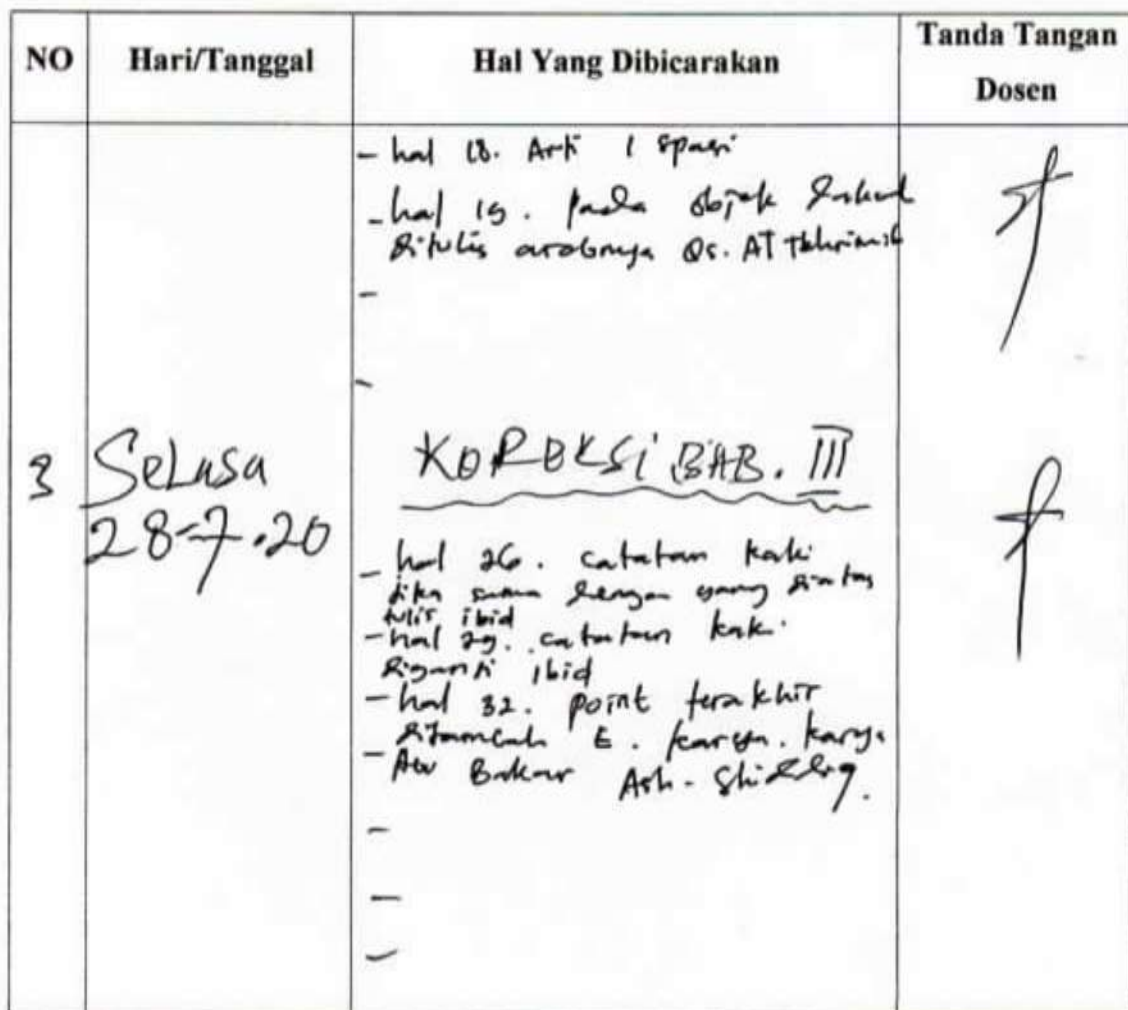 NO Hari/Tanggal Hal Yang Dibicarakan Tanda Tangan Dosen
- hal 18. Arti 1 spasi
- hal 19. pada objek
ditulis arabnya Qs. AT
-
-
3 Selasa
28-7-20
KOREKSI BAB. III
- hal 26. catatan kaki
jika sama dengan yang diatas
tulis ibid
- hal 29. catatan kaki
diganti ibid
- hal 32. point terakhir
ditambah E. karya. karya
- Abu Bakar Ash. Shiddiq.
-
-
-